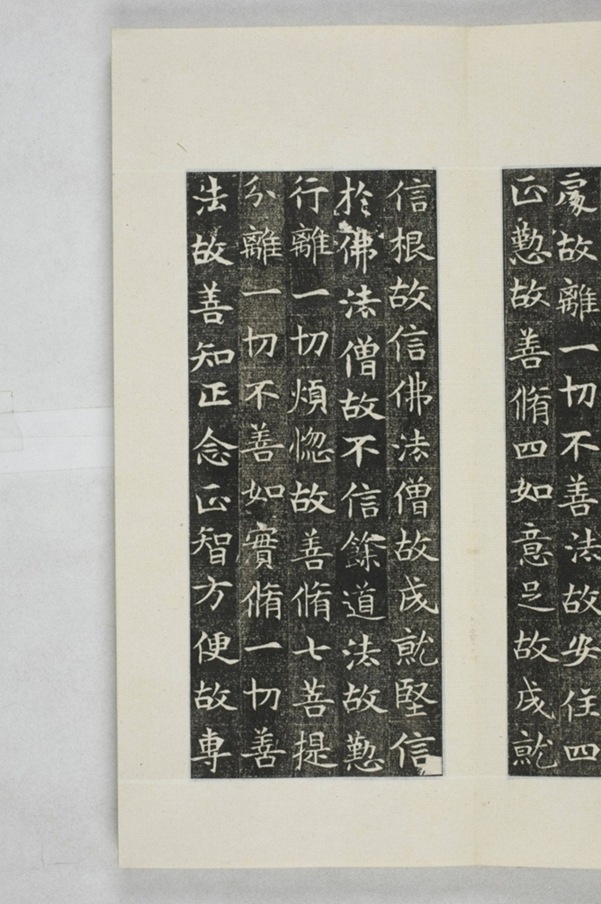 處故離一切不善法故安住四
正懃故善脩四如意足故成就
信根故信佛法僧故成就堅信
於佛法僧故不信餘道法故懃
行離一切煩惚故善脩七菩提
分離一切不善如實脩一切善
法故善知正念正智方便故專